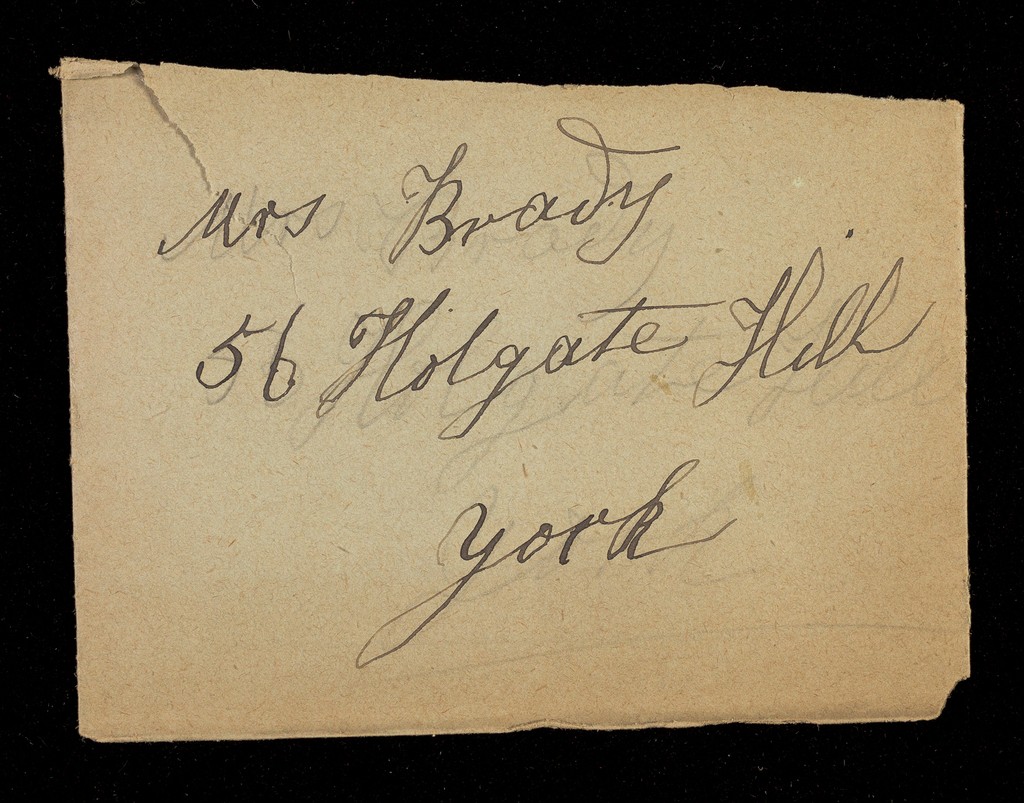 Mrs Brady
56 Holgate Hill
York